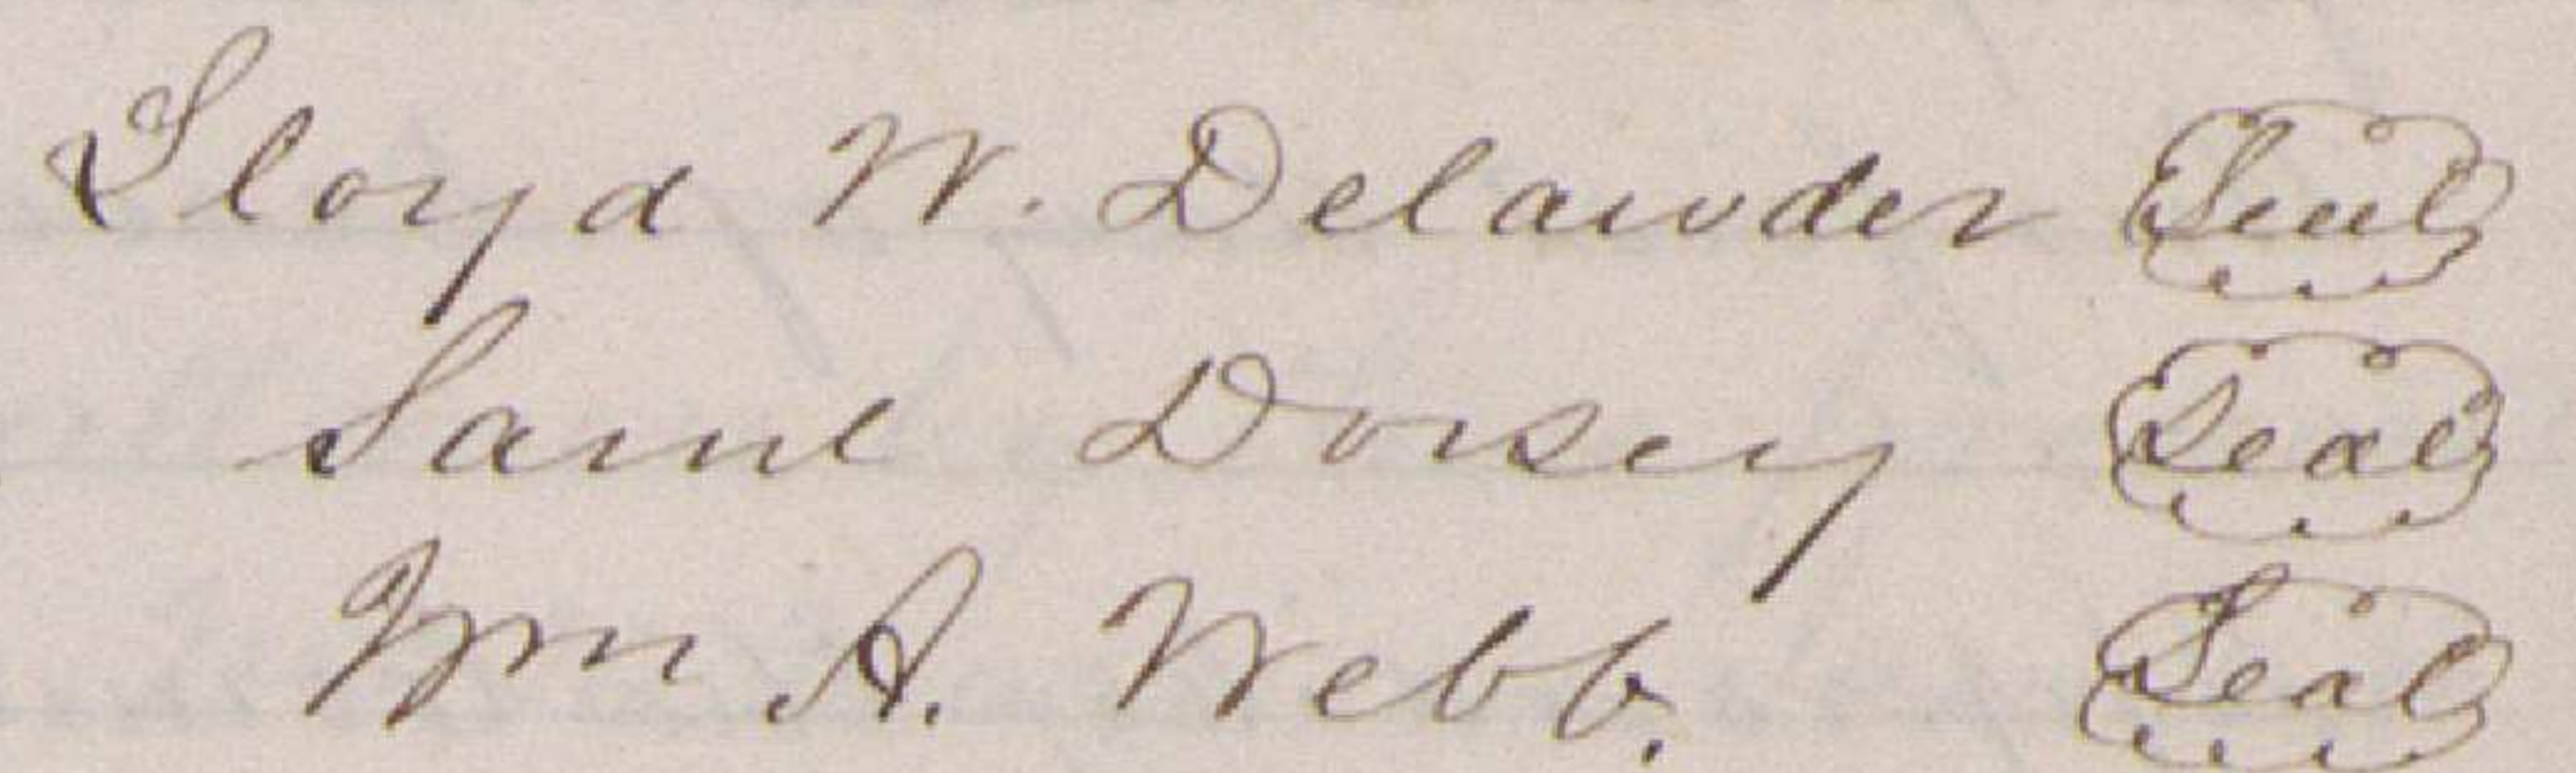 Lloyd W. Delawder Seal
Saml Dorsey Seal
Wm A. Webb. Seal